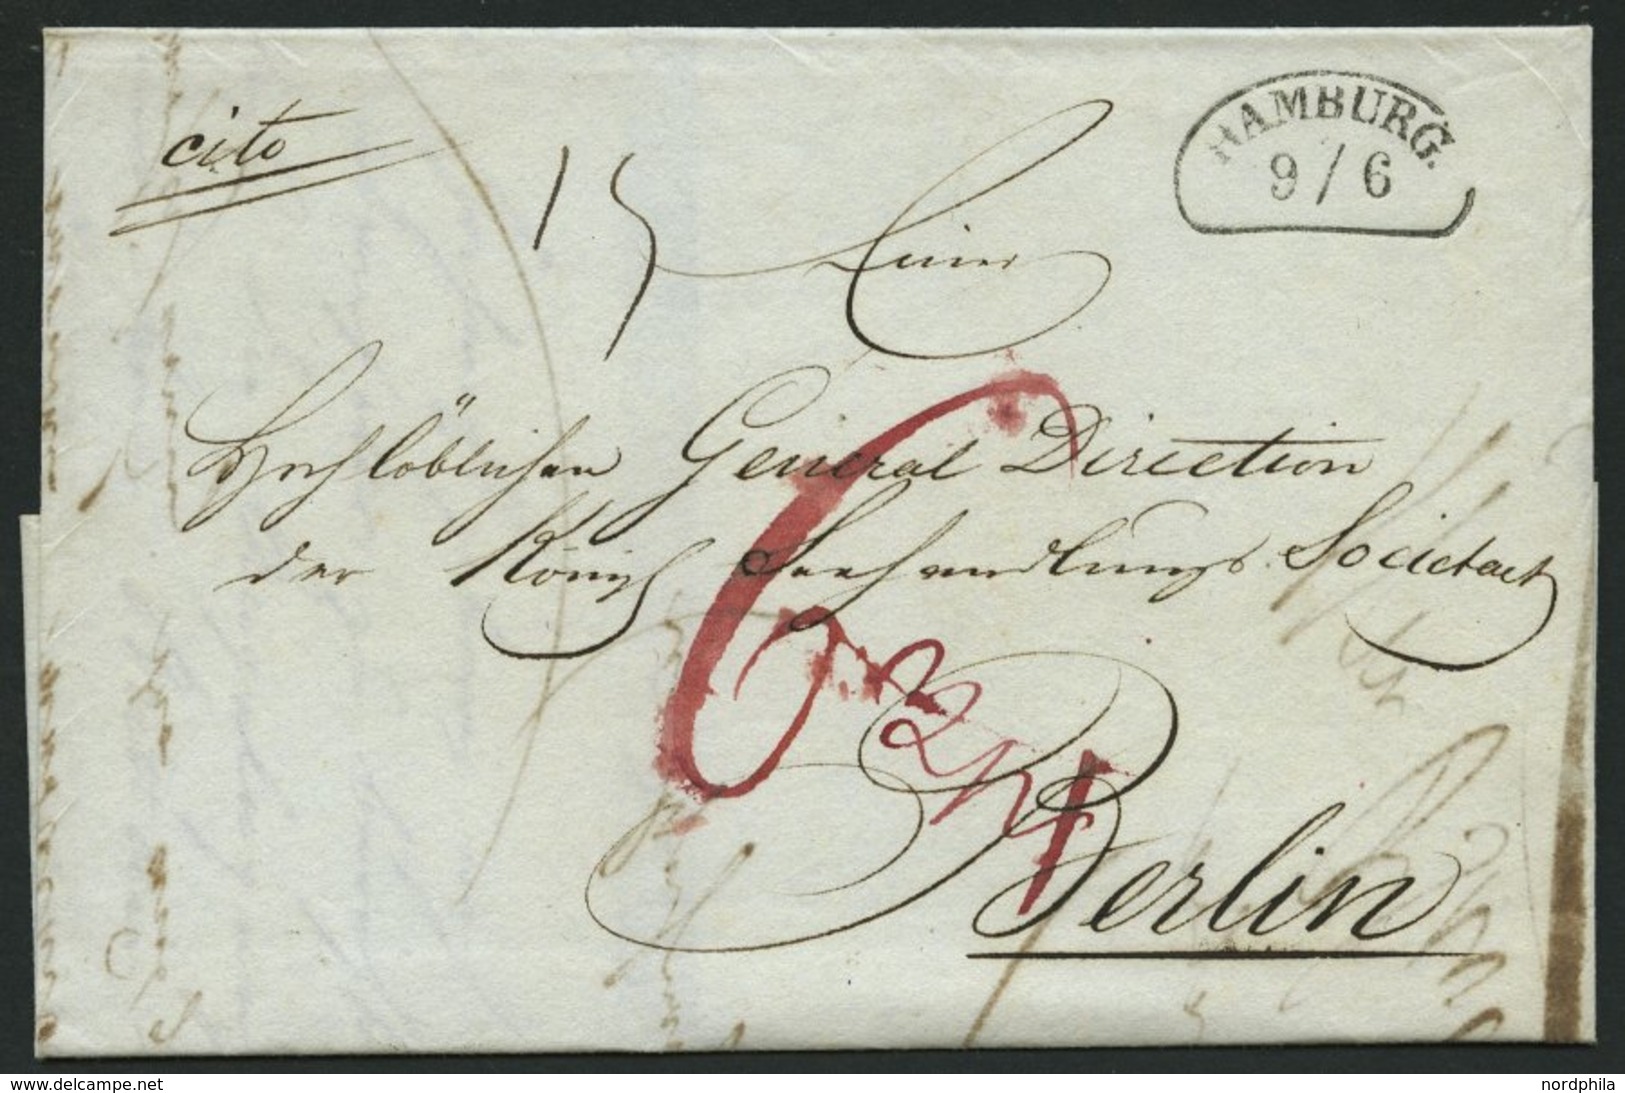 cito
HAMBURG.
9 / 6
15
Einer
Hochlöblichen General Direction
der Königl Seehandlungs Societaet
6
Berlin
www.delcampe.net
nordphila